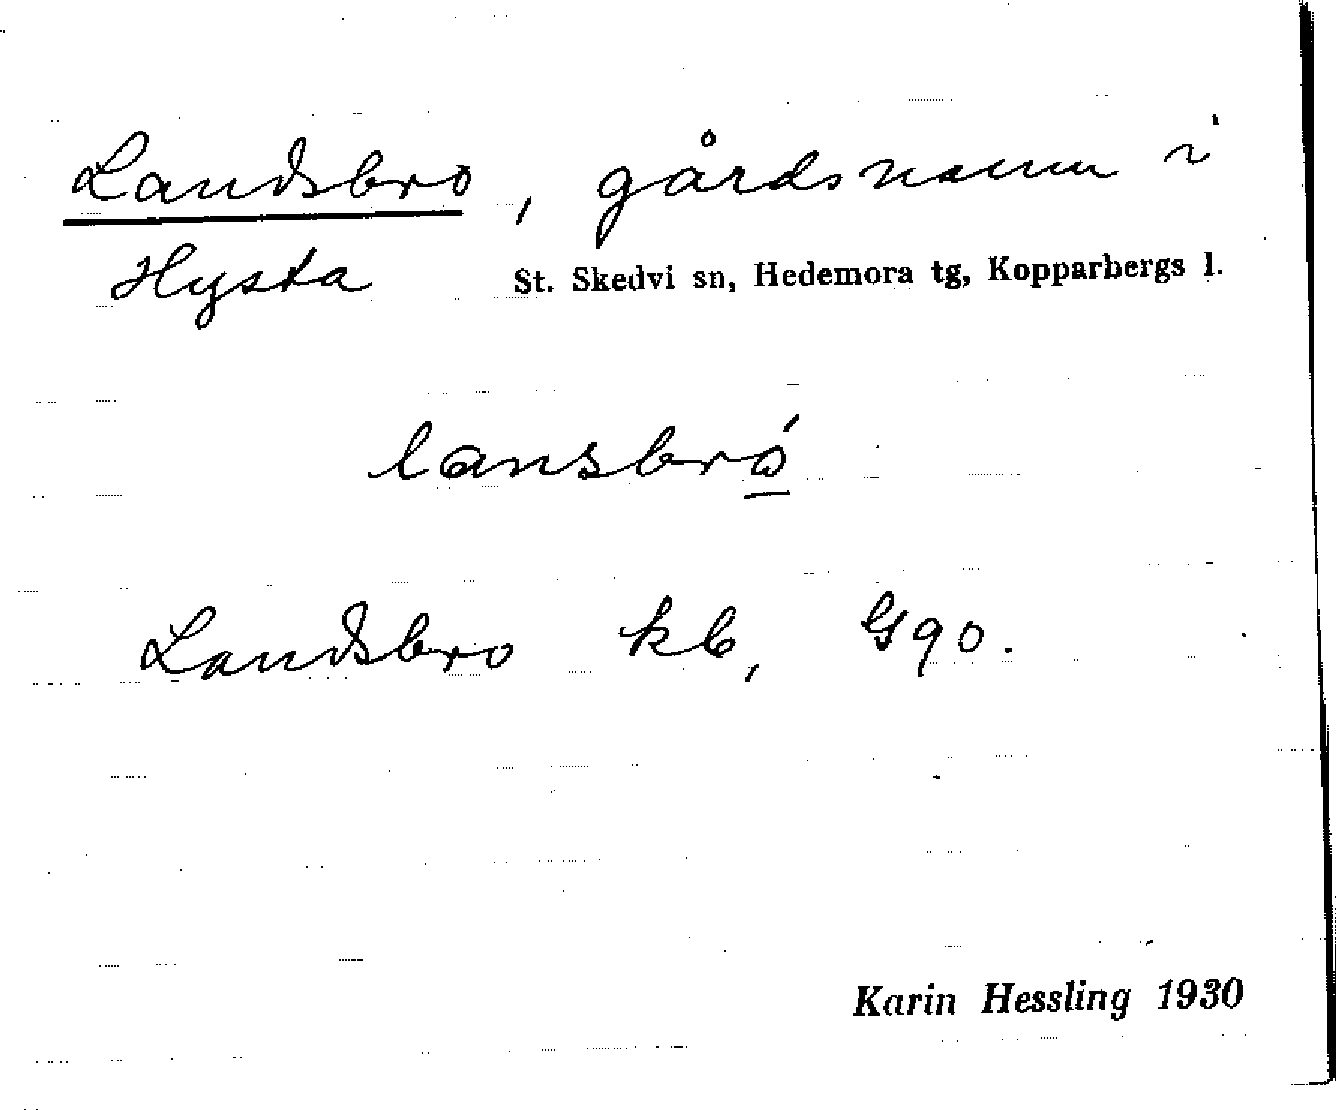 Landsbro, gårdsnamn i
Hysta St. Skedvi sn, Hedemora tg, Kopparbergs l.
lansbró
Landsbro kb, G90.
Karin Hessling 1930